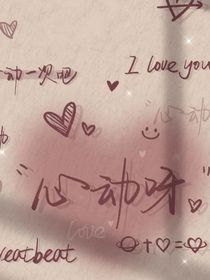 心动一次吧
I love you
"心动呀"
Love
eatbeat
+ =